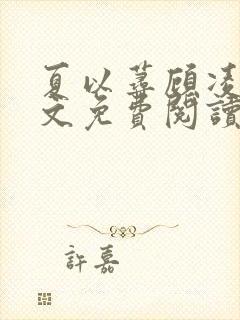 夏以蕁顧凌
文免費閱讀
許嘉